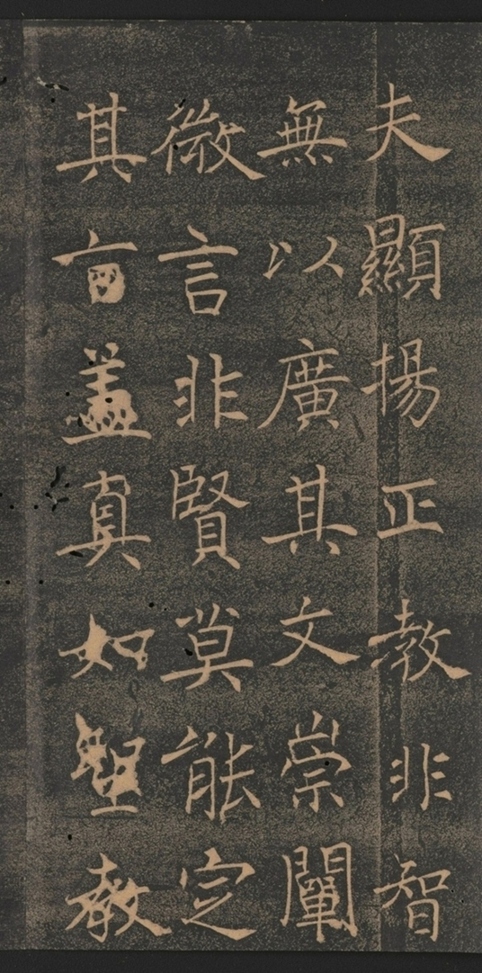 夫顯揚正教非智
無以廣其文崇闡
微言非賢莫能定
其旨盖真如聖教